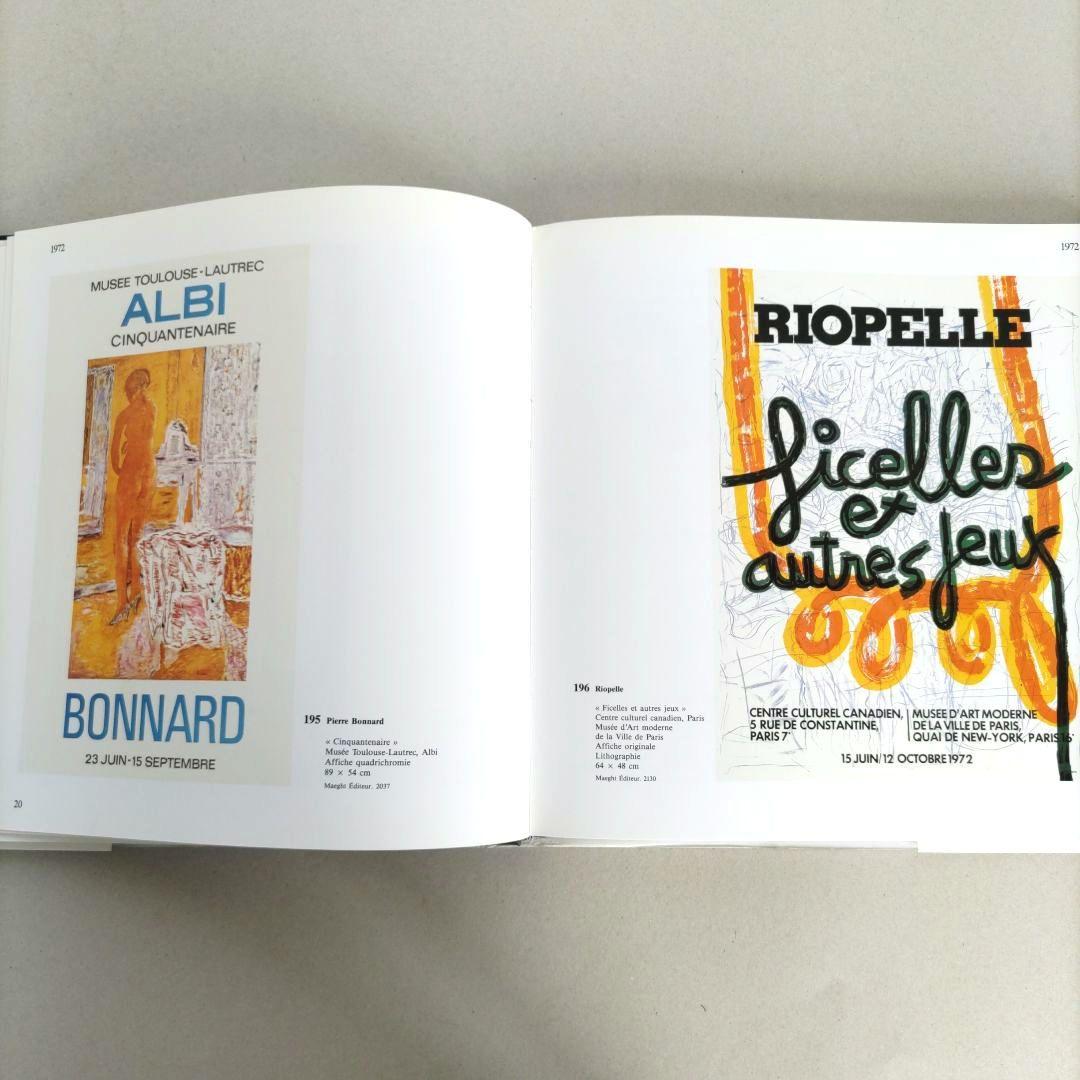 1972
MUSEE TOULOUSE-LAUTREC
ALBI
CINQUANTENAIRE
BONNARD
23 JUIN-15 SEPTEMBRE
195 Pierre Bonnard
« Cinquantenaire »
Musée Toulouse-Lautrec, Albi
Affiche quadrichromie
89 × 54 cm
Maeght Éditeur. 2037
20
1972
RIOPELLE
ficelles
et
autres jeux
CENTRE CULTUREL CANADIEN,
5 RUE DE CONSTANTINE,
PARIS 7e
MUSEE D'ART MODERNE
DE LA VILLE DE PARIS,
QUAI DE NEW-YORK, PARIS 16e
15 JUIN/12 OCTOBRE 1972
196 Riopelle
« Ficelles et autres jeux »
Centre culturel canadien, Paris
Musée d'Art moderne
de la Ville de Paris
Affiche originale
Lithographie
64 × 48 cm
Maeght Éditeur. 2130